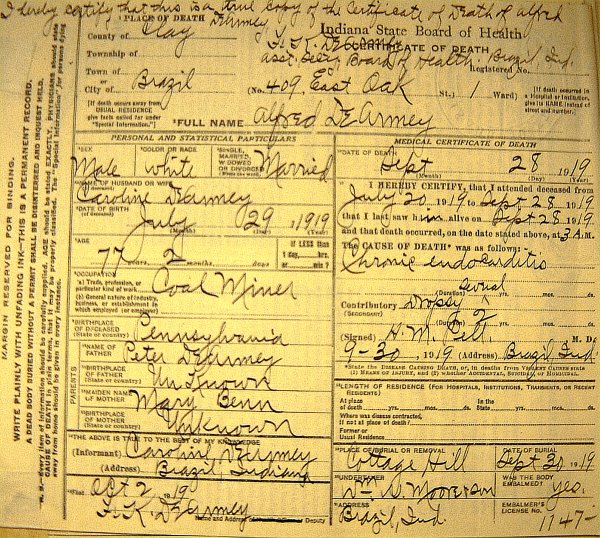 I hereby certify that this is a true copy of the Certificate of Death of Alfred
DeArmey
PLACE OF DEATH
County of Clay
Township of
Town of
or
City of Brazil
Indiana State Board of Health
CERTIFICATE OF DEATH
H. K. DeArmey
asst. Secy Board of Health. Brazil Ind.
Registered No.
(No. 409 East Oak St.; 1 Ward)
[If death occurs away from
USUAL RESIDENCE
give facts called for under
"Special Information."]
[If death occurred in
a Hospital or Institution,
give its NAME instead of
street and number.]
FULL NAME Alfred DeArmey
MARGIN RESERVED FOR BINDING.
WRITE PLAINLY WITH UNFADING INK—THIS IS A PERMANENT RECORD.
A DEAD BODY BURIED WITHOUT A PERMIT SHALL BE DISINTERRED AND INQUEST HELD.
N. B.—Every item of information should be carefully supplied. AGE should be stated EXACTLY, PHYSICIANS should state
CAUSE OF DEATH in plain terms, that it may be properly classified. The "Special Information" for persons dying
away from home should be given in every instance.
PERSONAL AND STATISTICAL PARTICULARS
SEX
Male
COLOR OR RACE
White
SINGLE,
MARRIED,
WIDOWED
OR DIVORCED
Married
NAME OF HUSBAND OR WIFE
Caroline DeArmey
DATE OF BIRTH
July 29 1919
(Month) (Day) (Year)
AGE
77 2
months days
If LESS than
1 day, hrs.
or min.?
OCCUPATION
(a) Trade, profession, or
particular kind of work
Coal Miner
(b) General nature of industry,
business, or establishment in
which employed (or employer)
BIRTHPLACE
OF DECEASED
(State or country)
Pennsylvania
PARENTS
NAME OF
FATHER
Peter DeArmey
BIRTHPLACE
OF FATHER
(State or country)
Unknown
MAIDEN NAME
OF MOTHER
Mary Penn
BIRTHPLACE
OF MOTHER
(State or country)
Unknown
THE ABOVE IS TRUE TO THE BEST OF MY KNOWLEDGE
(Informant) Caroline DeArmey
(Address) Brazil Indiana
Filed Oct 2 1919
H. K. DeArmey
Name and Address of Deputy
MEDICAL CERTIFICATE OF DEATH
DATE OF DEATH
Sept 28 1919
(Month) (Day) (Year)
I HEREBY CERTIFY, that I attended deceased from
July 20 1919 to Sept 28 1919
that I last saw him alive on Sept 28 1919
and that death occurred, on the date stated above, at 3 A.M.
The CAUSE OF DEATH* was as follows:
Chronic endocarditis
(Duration) yrs. mos. ds.
Contributory Dropsy
(SECONDARY)
(Duration) 2 yrs. mos. ds.
(Signed) H. M. M. D.
9-30, 1919 (Address) Brazil Ind.
*State the DISEASE CAUSING DEATH, or, in deaths from VIOLENT CAUSES state
(1) MEANS OF INJURY, and (2) whether ACCIDENTAL, SUICIDAL or HOMICIDAL.
LENGTH OF RESIDENCE (FOR HOSPITALS, INSTITUTIONS, TRANSIENTS, OR RECENT
RESIDENTS)
At place
of death yrs. mos. ds.
In the
State yrs. mos. ds.
Where was disease contracted,
if not at place of death?
Former or
Usual Residence
PLACE OF BURIAL OR REMOVAL
Cottage Hill
DATE OF BURIAL
Sept 30 1919
UNDERTAKER
Wm W. Moorerson
WAS THE BODY
EMBALMED? yes.
ADDRESS
Brazil, Ind.
EMBALMER'S
LICENSE No. 1147-